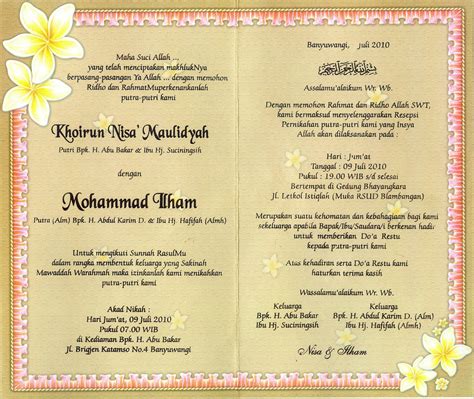 Maha Suci Allah ...
yang telah menciptakan makhlukNya
berpasang-pasangan Ya Allah ... dengan memohon
Ridho dan RahmatMuperkenankanlah
putra-putri kami
Khoirun Nisa' Maulidyah
Putri Bpk. H. Abu Bakar & Ibu Hj. Suciningsih
dengan
Mohammad Ilham
Putra (Alm) Bpk. H. Abdul Karim D. & Ibu Hj. Hafifah (Almh)
Untuk mengikuti Sunnah RasulMu
dalam rangka membentuk keluarga yang Sakinah
Mawaddah Warahmah maka izinkanlah kami menikahkan
putra-putri kami
Akad Nikah :
Hari Jum'at, 09 Juli 2010
Pukul 07.00 WIB
di Kediaman Bpk. H. Abu Bakar
Jl. Brigjen Katamso No.4 Banyuwangi
Banyuwangi, Juli 2010
بسم الله الرحمن الرحيم
Assalamu'alaikum Wr. Wb.
Dengan memohon Rahmat dan Ridho Allah SWT,
kami bermaksud menyelenggarakan Resepsi
Pernikahan putra-putri kami yang Insya
Allah akan dilaksanakan pada :
Hari : Jum'at
Tanggal : 09 Juli 2010
Pukul : 19.00 WIB s/d selesai
Bertempat di Gedung Bhayangkara
Jl. Letkol Istiqlah (Muka RSUD Blambangan)
Merupakan suatu kehomatan dan kebahagiaan bagi kami
sekeluarga apabila Bapak/Ibu/Saudara/i berkenan hadi
untuk memberikan Do'a Restu
kepada putra-putri kami.
Atas kehadiran serta Do'a Restu kami
haturkan terima kasih
Wassalamu'alaikum Wr. Wb.
Keluarga
Bpk. H. Abu Bakar
Ibu Hj. Suciningsih
Keluarga
Bpk. H. Abdul Karim D. (Alm)
Ibu Hj. Hafifah (Almh)
Nisa & Ilham